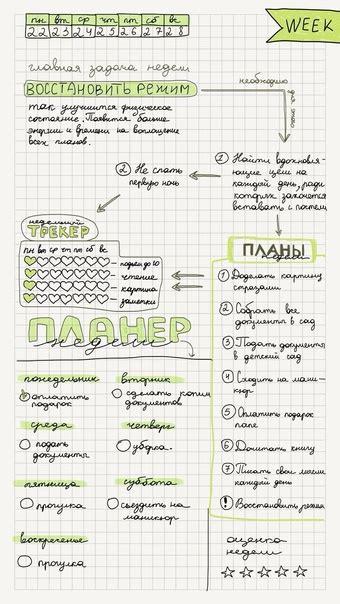 ПН ВТ СР ЧТ ПТ СБ ВС
22 23 24 25 26 27 28
WEEK
главная задача недели
ВОССТАНОВИТЬ РЕЖИМ
необходимо
для этого
так улучшится физическое
состояние. Появится больше
энергии и времени на воплощение
всех планов.
1 Найти вдохновля-
ющие цели на
каждый день, ради
которых захочется
вставать с постели
2 Не спать
первую ночь
недельный
ТРЕКЕР
пн вт ср чт пт сб вс
подъем до 10
чтение
картина
заметки
ПЛАНЫ
недели
1 Доделать картину
стразами
2 Собрать все
документы в сад
3 Подать документы
в детский сад
4 Сходить на мани-
кюр
5 Оплатить подарок
папе
6 Дочитать книгу
7 Писать свои мысли
каждый день
! Восстановить режим
ПЛАНЕР
недели
понедельник
оплатить
подарок
вторник
сделать копии
документов
среда
подать
документы
четверг
уборка.
пятница
прогулка
суббота
съездить на
маникюр
воскресенье
прогулка
оценка
недели